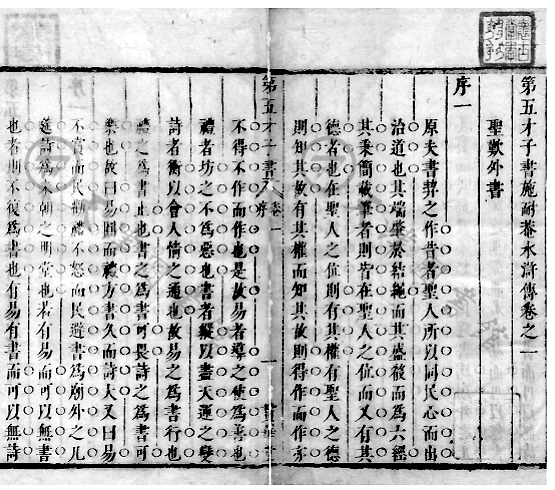 第五才子書施耐菴水滸傳卷之一
聖歎外書
序一
原夫書契之作昔者聖人所以同民心而出
治道也其端肇於結繩而其盛殽而為六經
其秉簡載筆者則皆在聖人之位而又有其
德者也在聖人之位則有其權有聖人之德
則知其故有其權而知其故則得作而作亦
第五才子書 卷一 序 一
不得不作而作也是故易者導之使為善也
禮者坊之不為惡也書者縱以盡天運之變
詩者衡以會人情之通也故易之為書行也
禮之為書止也書之為書可畏詩之為書可
樂也故曰易圓而禮方書久而詩大又曰易
不賞而民勸禮不怒而民避書為廟外之几
筵詩為未朝之明堂也若有易而可以無書
也者則不復為書也有易有書而可以無詩